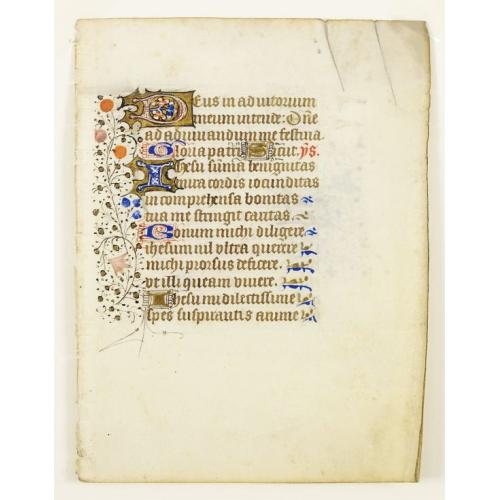 Deus in adiutorium
meum intende: Dn̄e
ad adiuuandum me festina
Gloria patri Sicut. ys.
Ihesu sum̄a benignitas
mira cordis iocunditas
incomprehensa bonitas
tua me stringit caritas.
Bonum michi diligere
ihesum nil vltra querere
michi prorsus deficere.
vt illi queam viuere.
Ihesu mi dilectissime
spes suspirantis anime